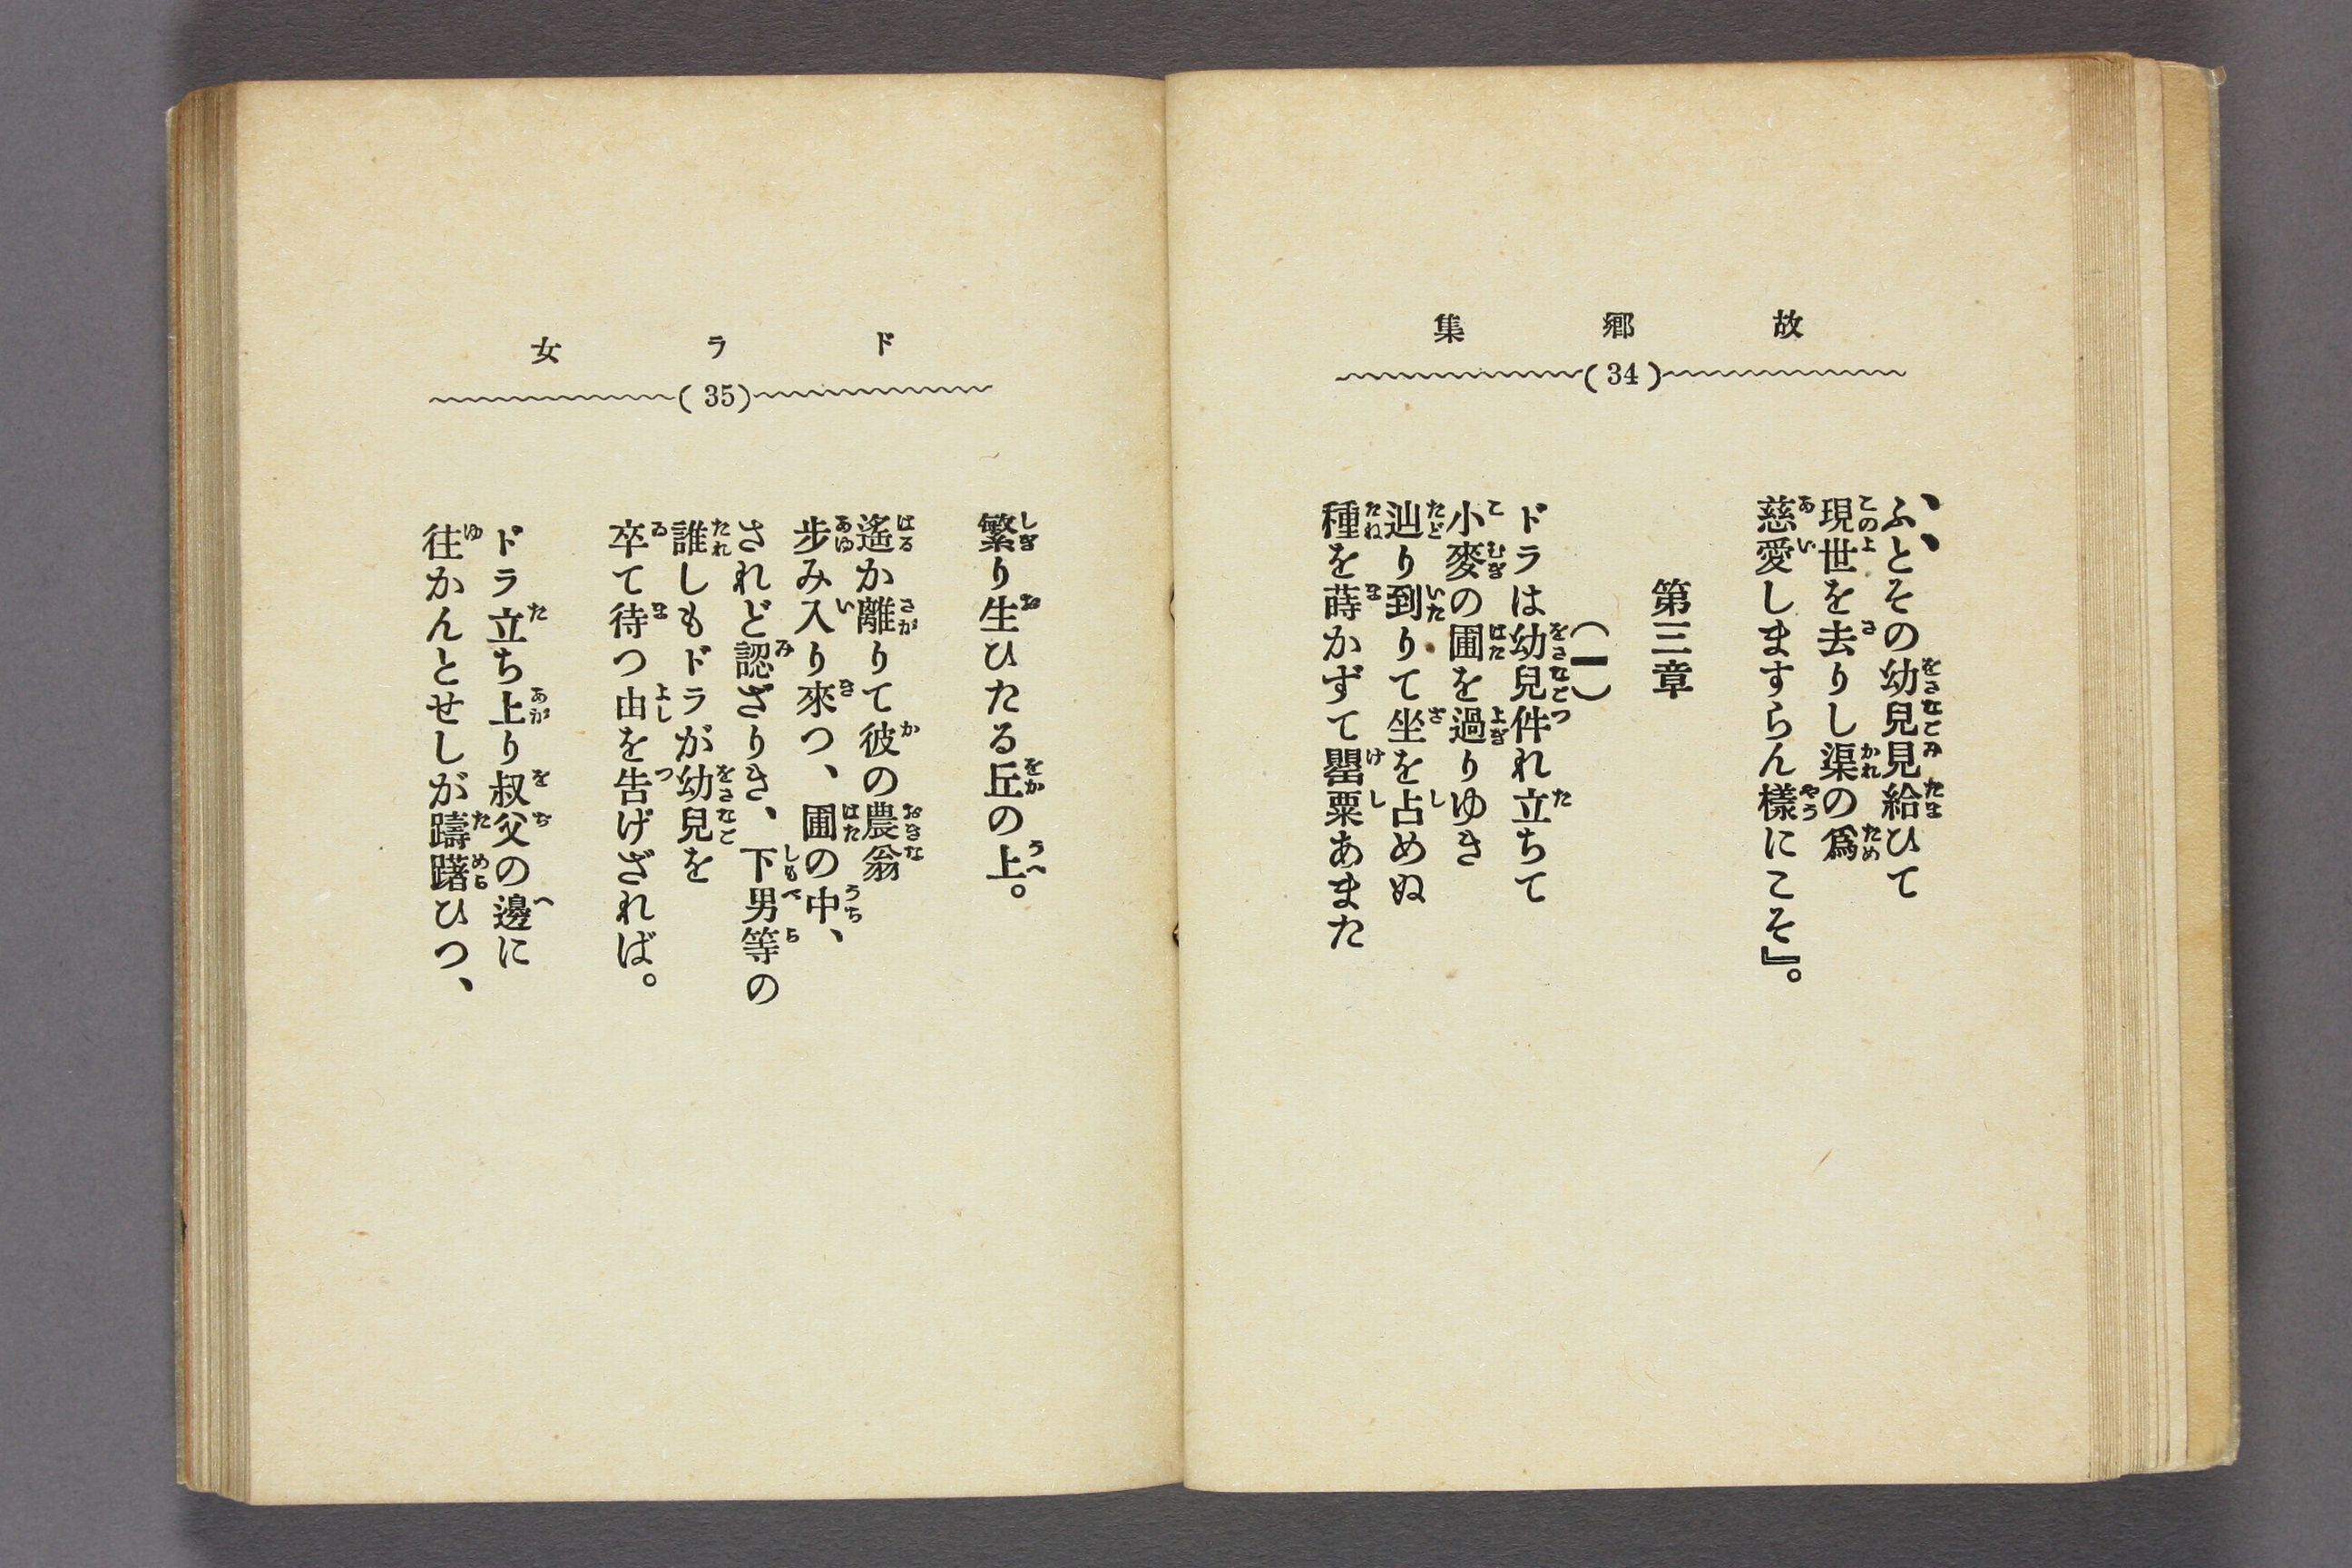 故郷集
(34)
ふとその幼兒見給ひて
現世を去りし渠の爲
慈愛しますらん樣にこそ』。
第三章
(一)
ドラは幼兒件れ立ちて
小麥の圃を過りゆき
辿り到りて坐を占めぬ
種を蒔かずて罌粟あまた
ドラ女
(35)
繁り生ひたる丘の上。
遙か離りて彼の農翁
步み入り來つ、圃の中、
されど認ざりき、下男等の
誰しもドラが幼兒を
卒て待つ由を告げざれば。
ドラ立ち上り叔父の邊に
往かんとせしが躊躇ひつ、